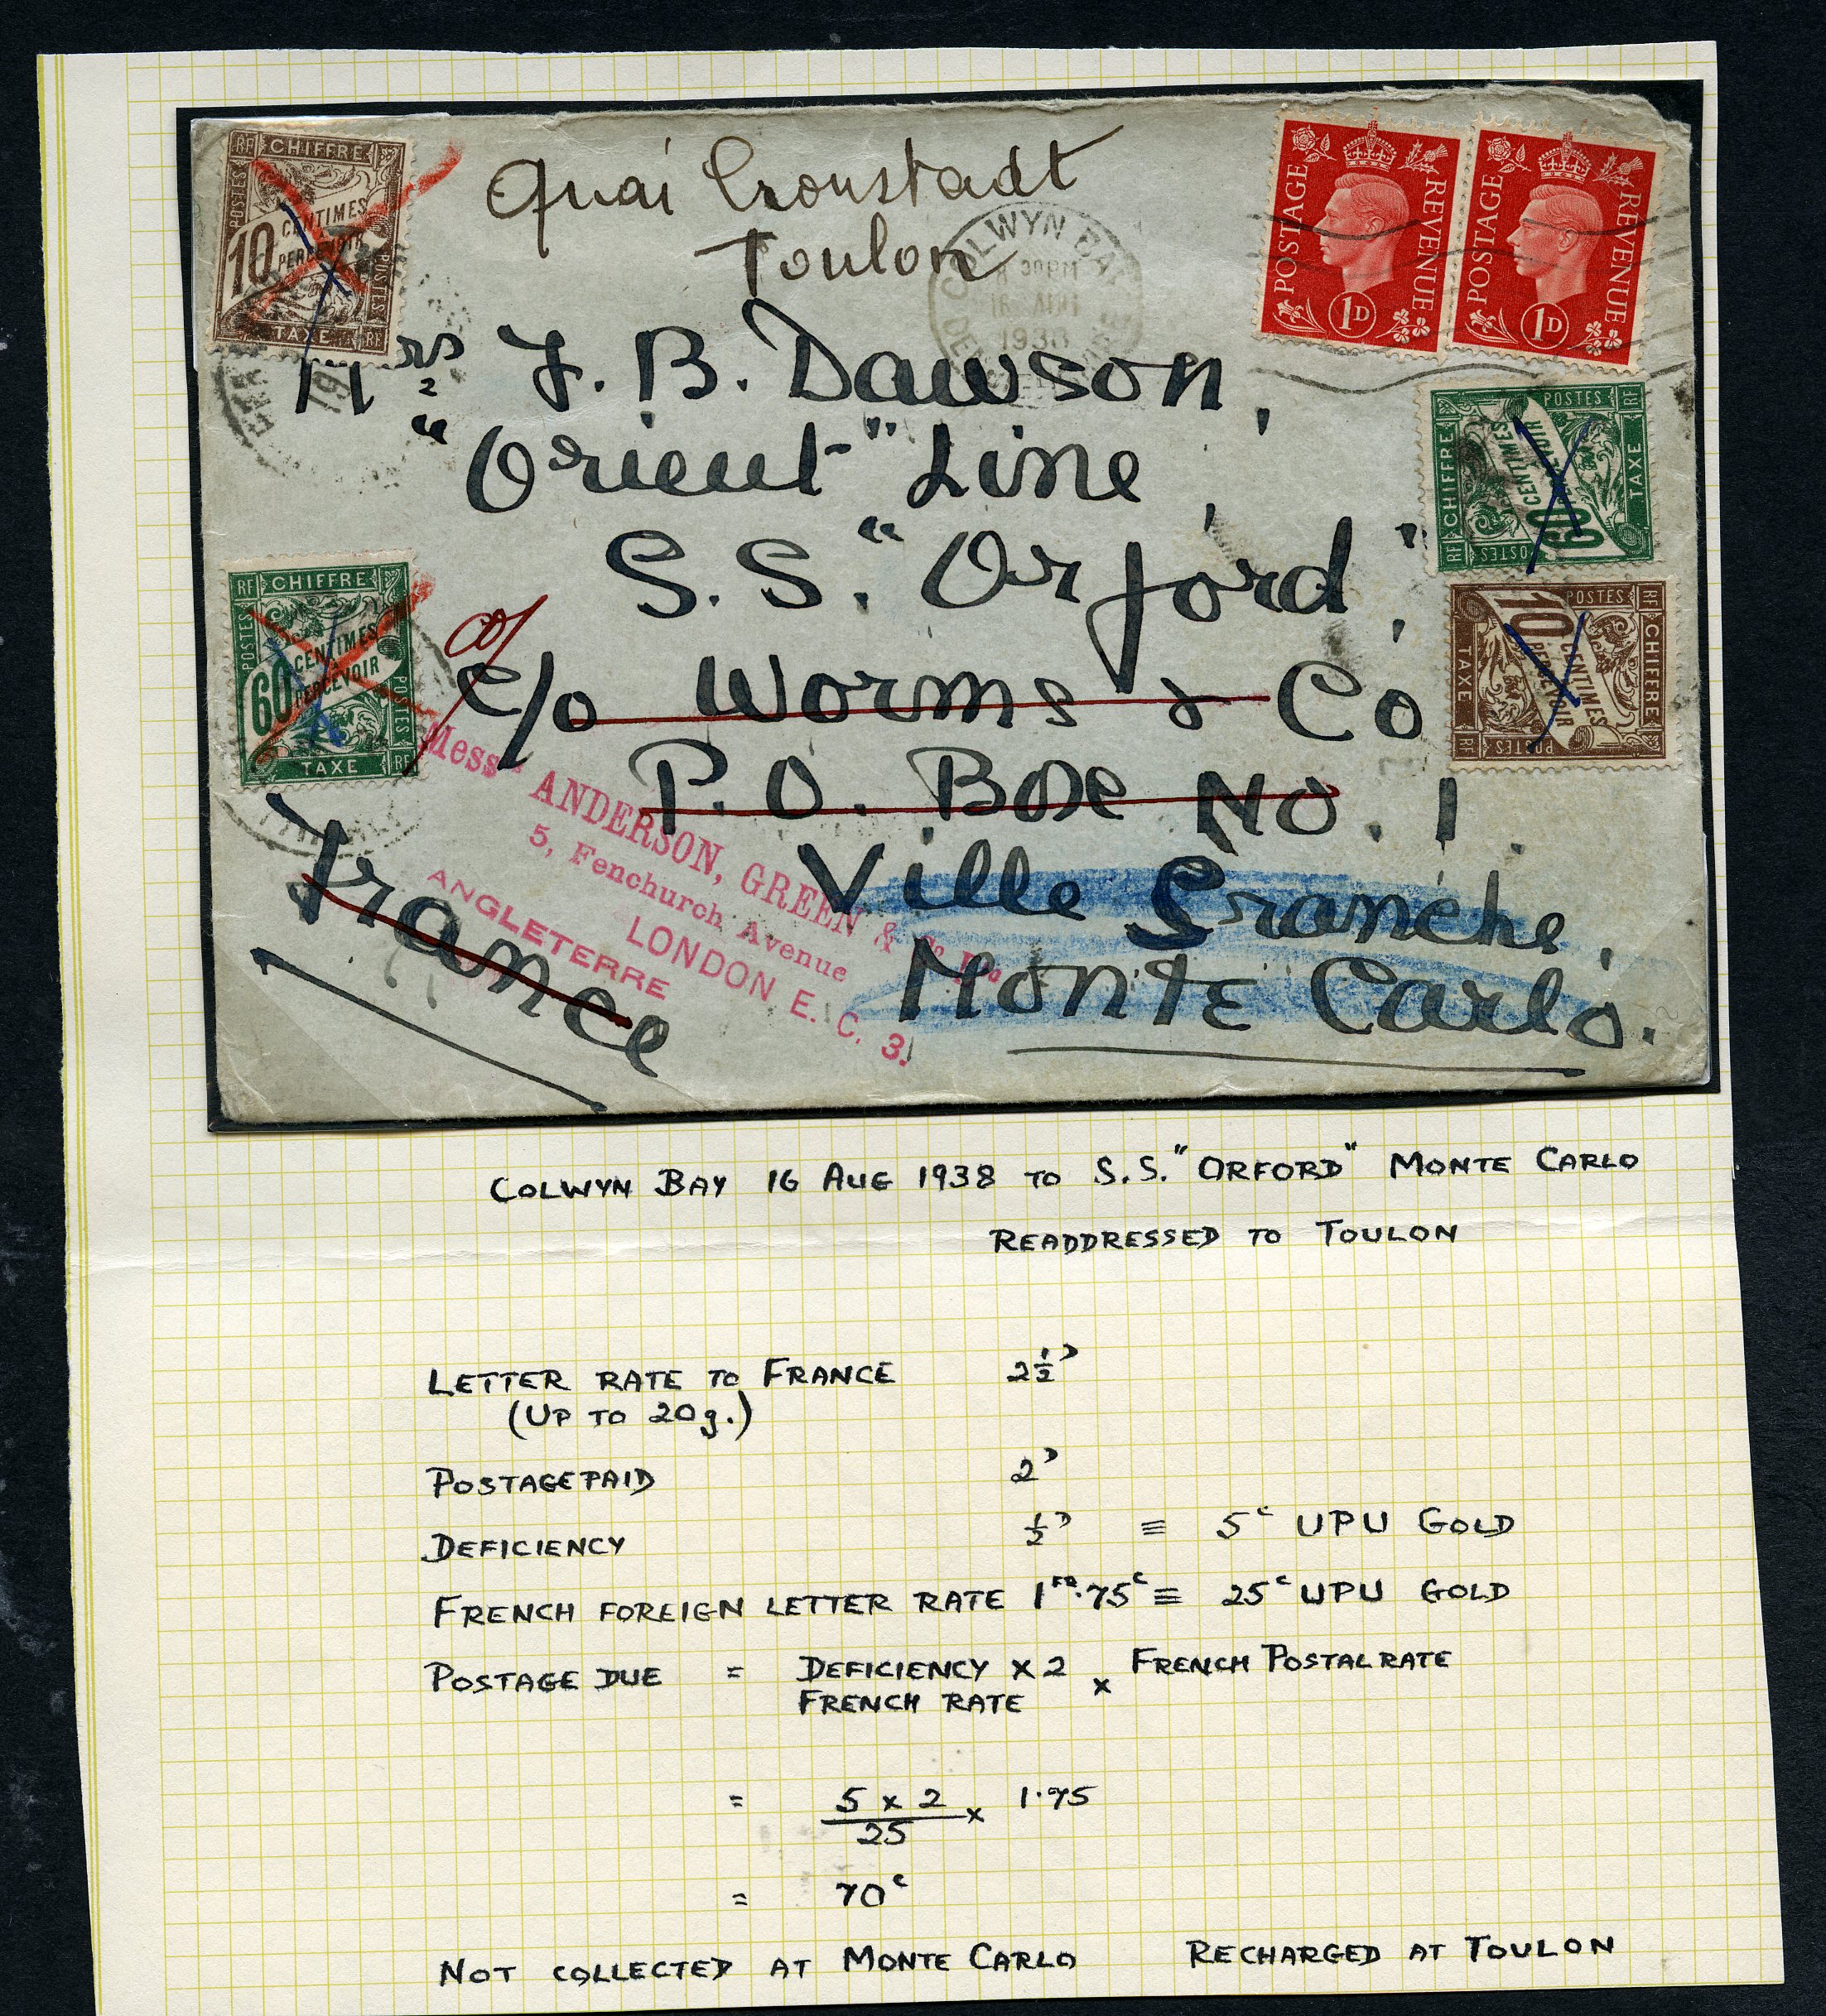 Quai Cronstadt
Toulon
COLWYN BAY
8 30PM
16 AUG
1938
POSTAGE REVENUE
1D
POSTAGE REVENUE
1D
RF CHIFFRE
POSTES
10 CENTIMES
A PERCEVOIR
POSTES
TAXE RF
Mrs J. B. Dawson,
"Orient" Line,
S.S. "Orford",
c/o
c/o Worms & Co
P.O. Box No. 1.
Ville Franche,
Monte Carlo.
France
Messrs ANDERSON, GREEN & Co Ltd
5, Fenchurch Avenue
LONDON E. C. 3.
ANGLETERRE
RF CHIFFRE
POSTES
60 CENTIMES
A PERCEVOIR
POSTES
TAXE RF
POSTES RF
CHIFFRE
60 CENTIMES
PERCEVOIR
TAXE
RF POSTES
POSTES RF
TAXE
10 CENTIMES
PERCEVOIR
CHIFFRE
RF POSTES
COLWYN BAY 16 AUG 1938 TO S.S. "ORFORD" MONTE CARLO
READDRESSED TO TOULON
LETTER RATE TO FRANCE 2½D
(UP TO 20g.)
POSTAGE PAID 2D
DEFICIENCY ½D ≡ 5c UPU GOLD
FRENCH FOREIGN LETTER RATE 1FR.75c ≡ 25c UPU GOLD
POSTAGE DUE = DEFICIENCY x 2 x FRENCH POSTAL RATE
FRENCH RATE
= 5 x 2 x 1.75
25
= 70c
NOT COLLECTED AT MONTE CARLO RECHARGED AT TOULON